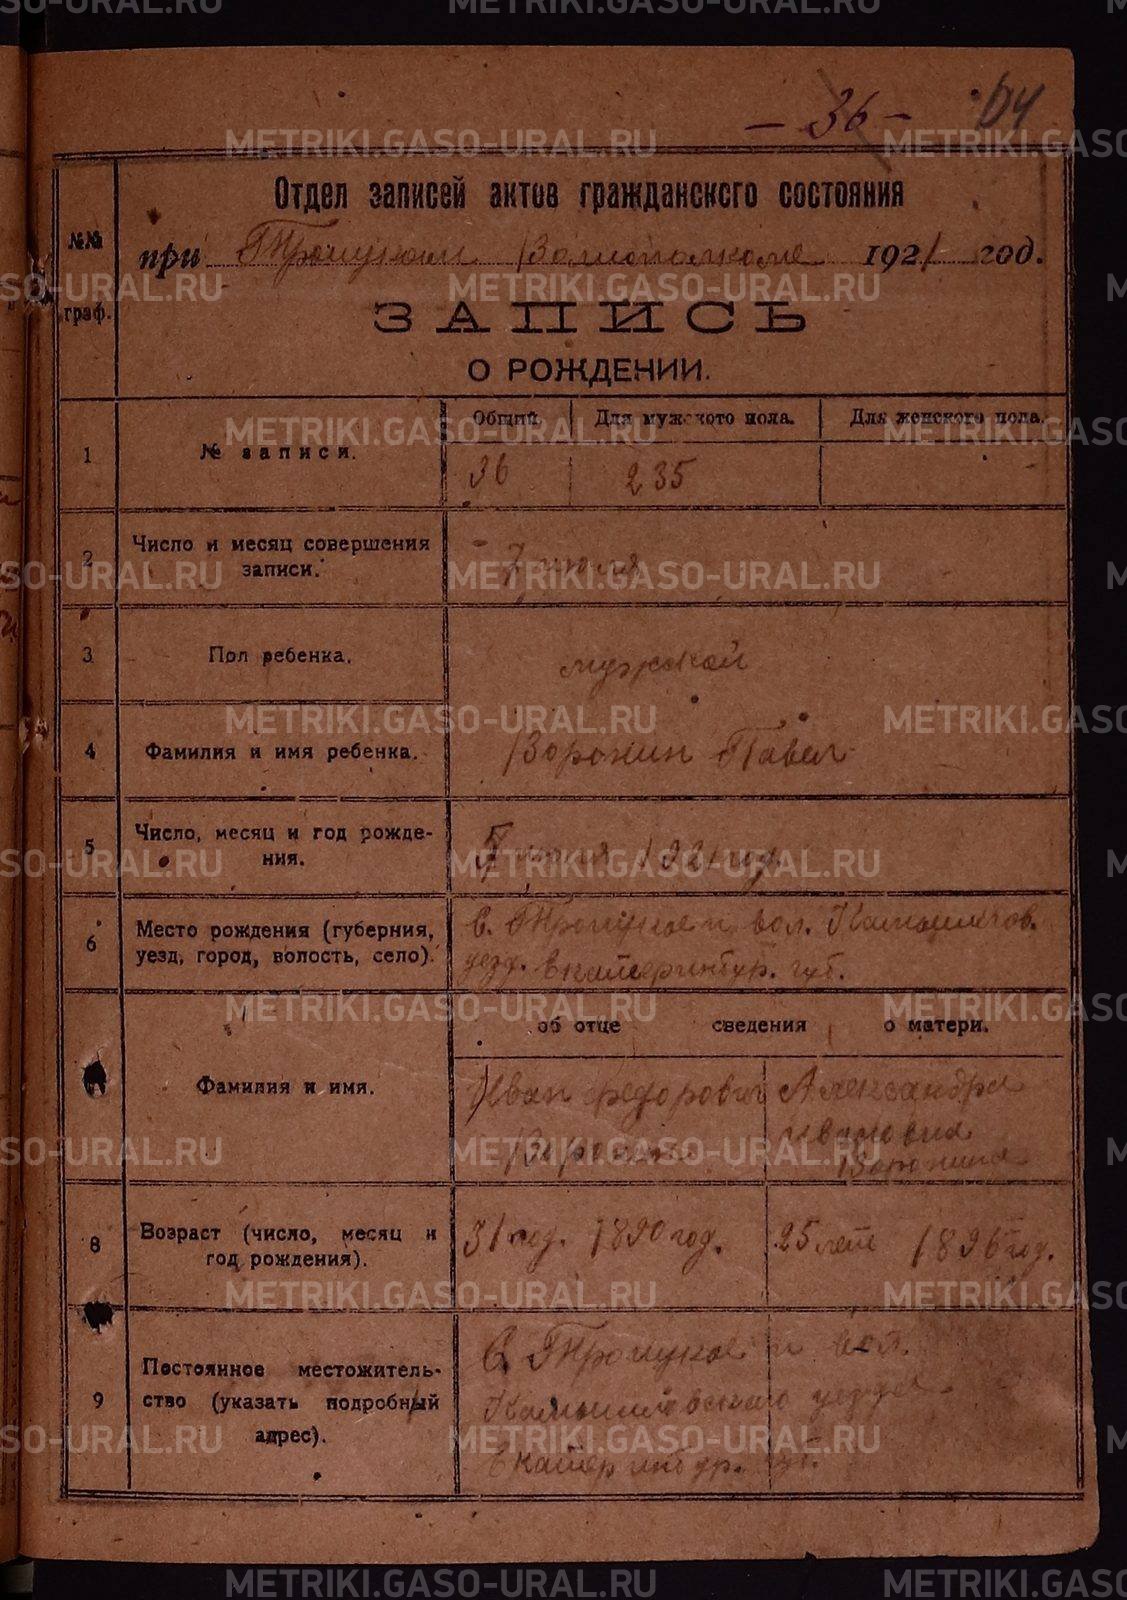 - 36 -
104
Отдел записей актов гражданского состояния
№№
граф.
при Троицком Волисполкоме 1921 год.
ЗАПИСЬ
О РОЖДЕНИИ.
1 № записи. Общий. Для мужского пола. Для женского пола.
36 235
2 Число и месяц совершения
записи.
7 июля
3 Пол ребенка. мужской
4 Фамилия и имя ребенка. Воронин Павел
5 Число, месяц и год рожде-
ния.
5 1921 год.
6 Место рождения (губерния,
уезд, город, волость, село).
с. Троицкое и вол. Камышлов.
уезд. Екатеринбур. губ.
об отце сведения о матери.
Фамилия и имя.
Иван Федорович Александра
Ивановна
Воронин Воронина
8 Возраст (число, месяц и
год рождения).
31 год. 1890 год. 25 лет 1896 год.
9 Постоянное местожитель-
ство (указать подробный
адрес).
С. Троицкое и вол.
Камышловского уезда
Екатеринбур. губ.
METRIKI.GASO-URAL.RU